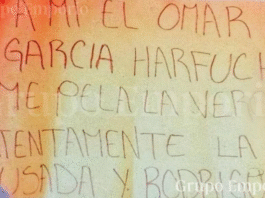 A MI EL OMAR
GARCIA HARFUCH
ME PELA LA VER
ATENTAMENTE LA
USADA Y RODRIGA
Grupo Emporio